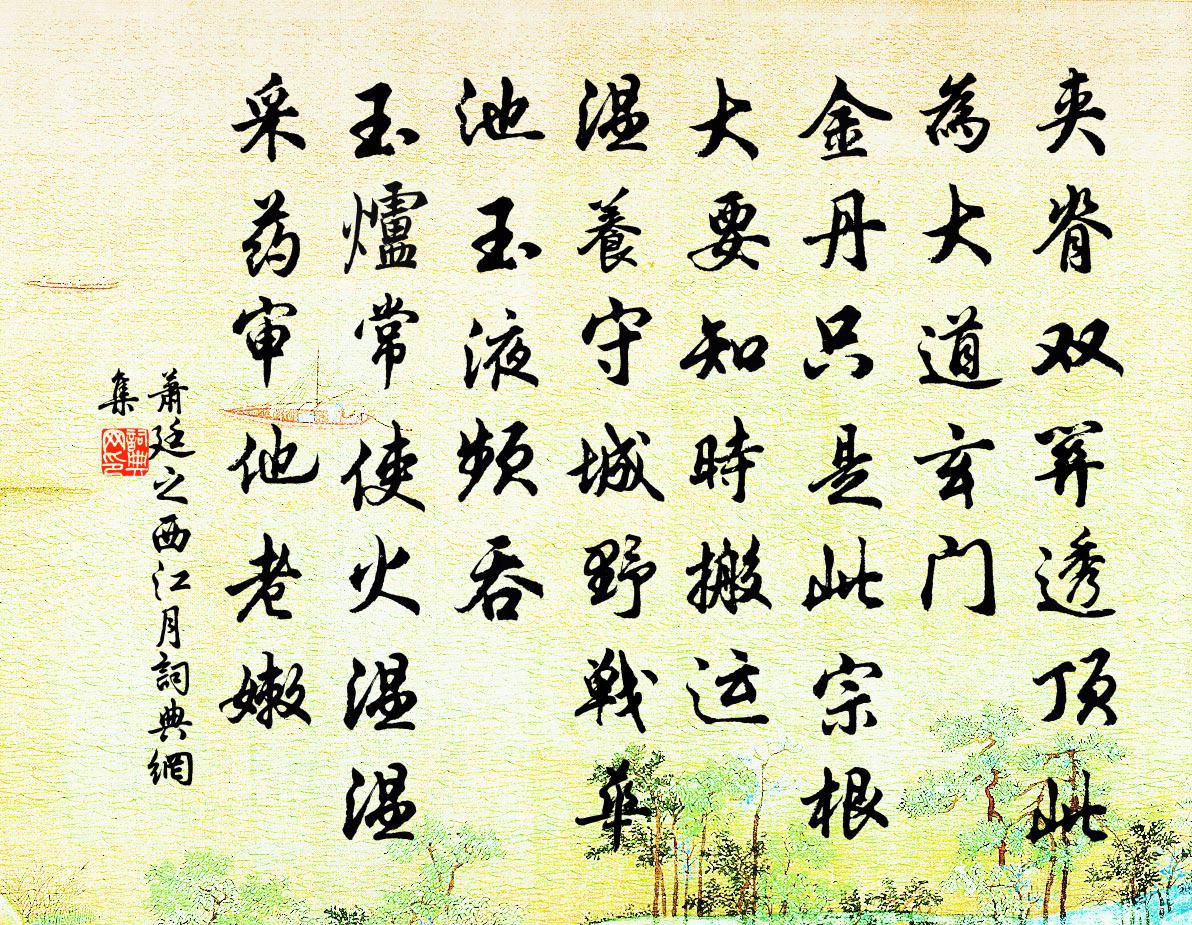 夹脊双关透顶此
为大道玄门
金丹只是此宗根
大要知時搬运
温養守城野战華
池玉液频吞
玉爐常使火温温
采药审他老嫩
萧廷之西江月詞典網
集
詞典
网印